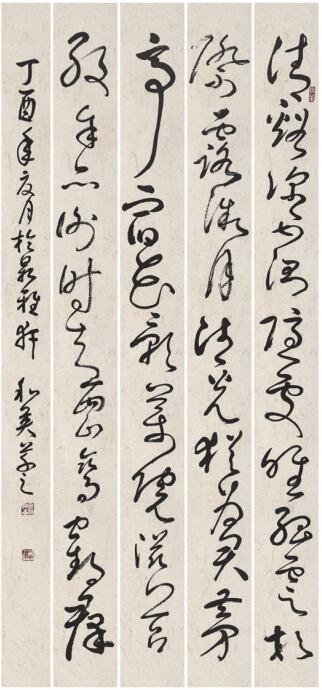 清谿深不測隱處唯孤雲松
際露微月清光猶為君茅
亭宿花影藥院滋苔
紋余亦謝時去西山鸞鶴群
丁酉年夏月於雅軒 和美